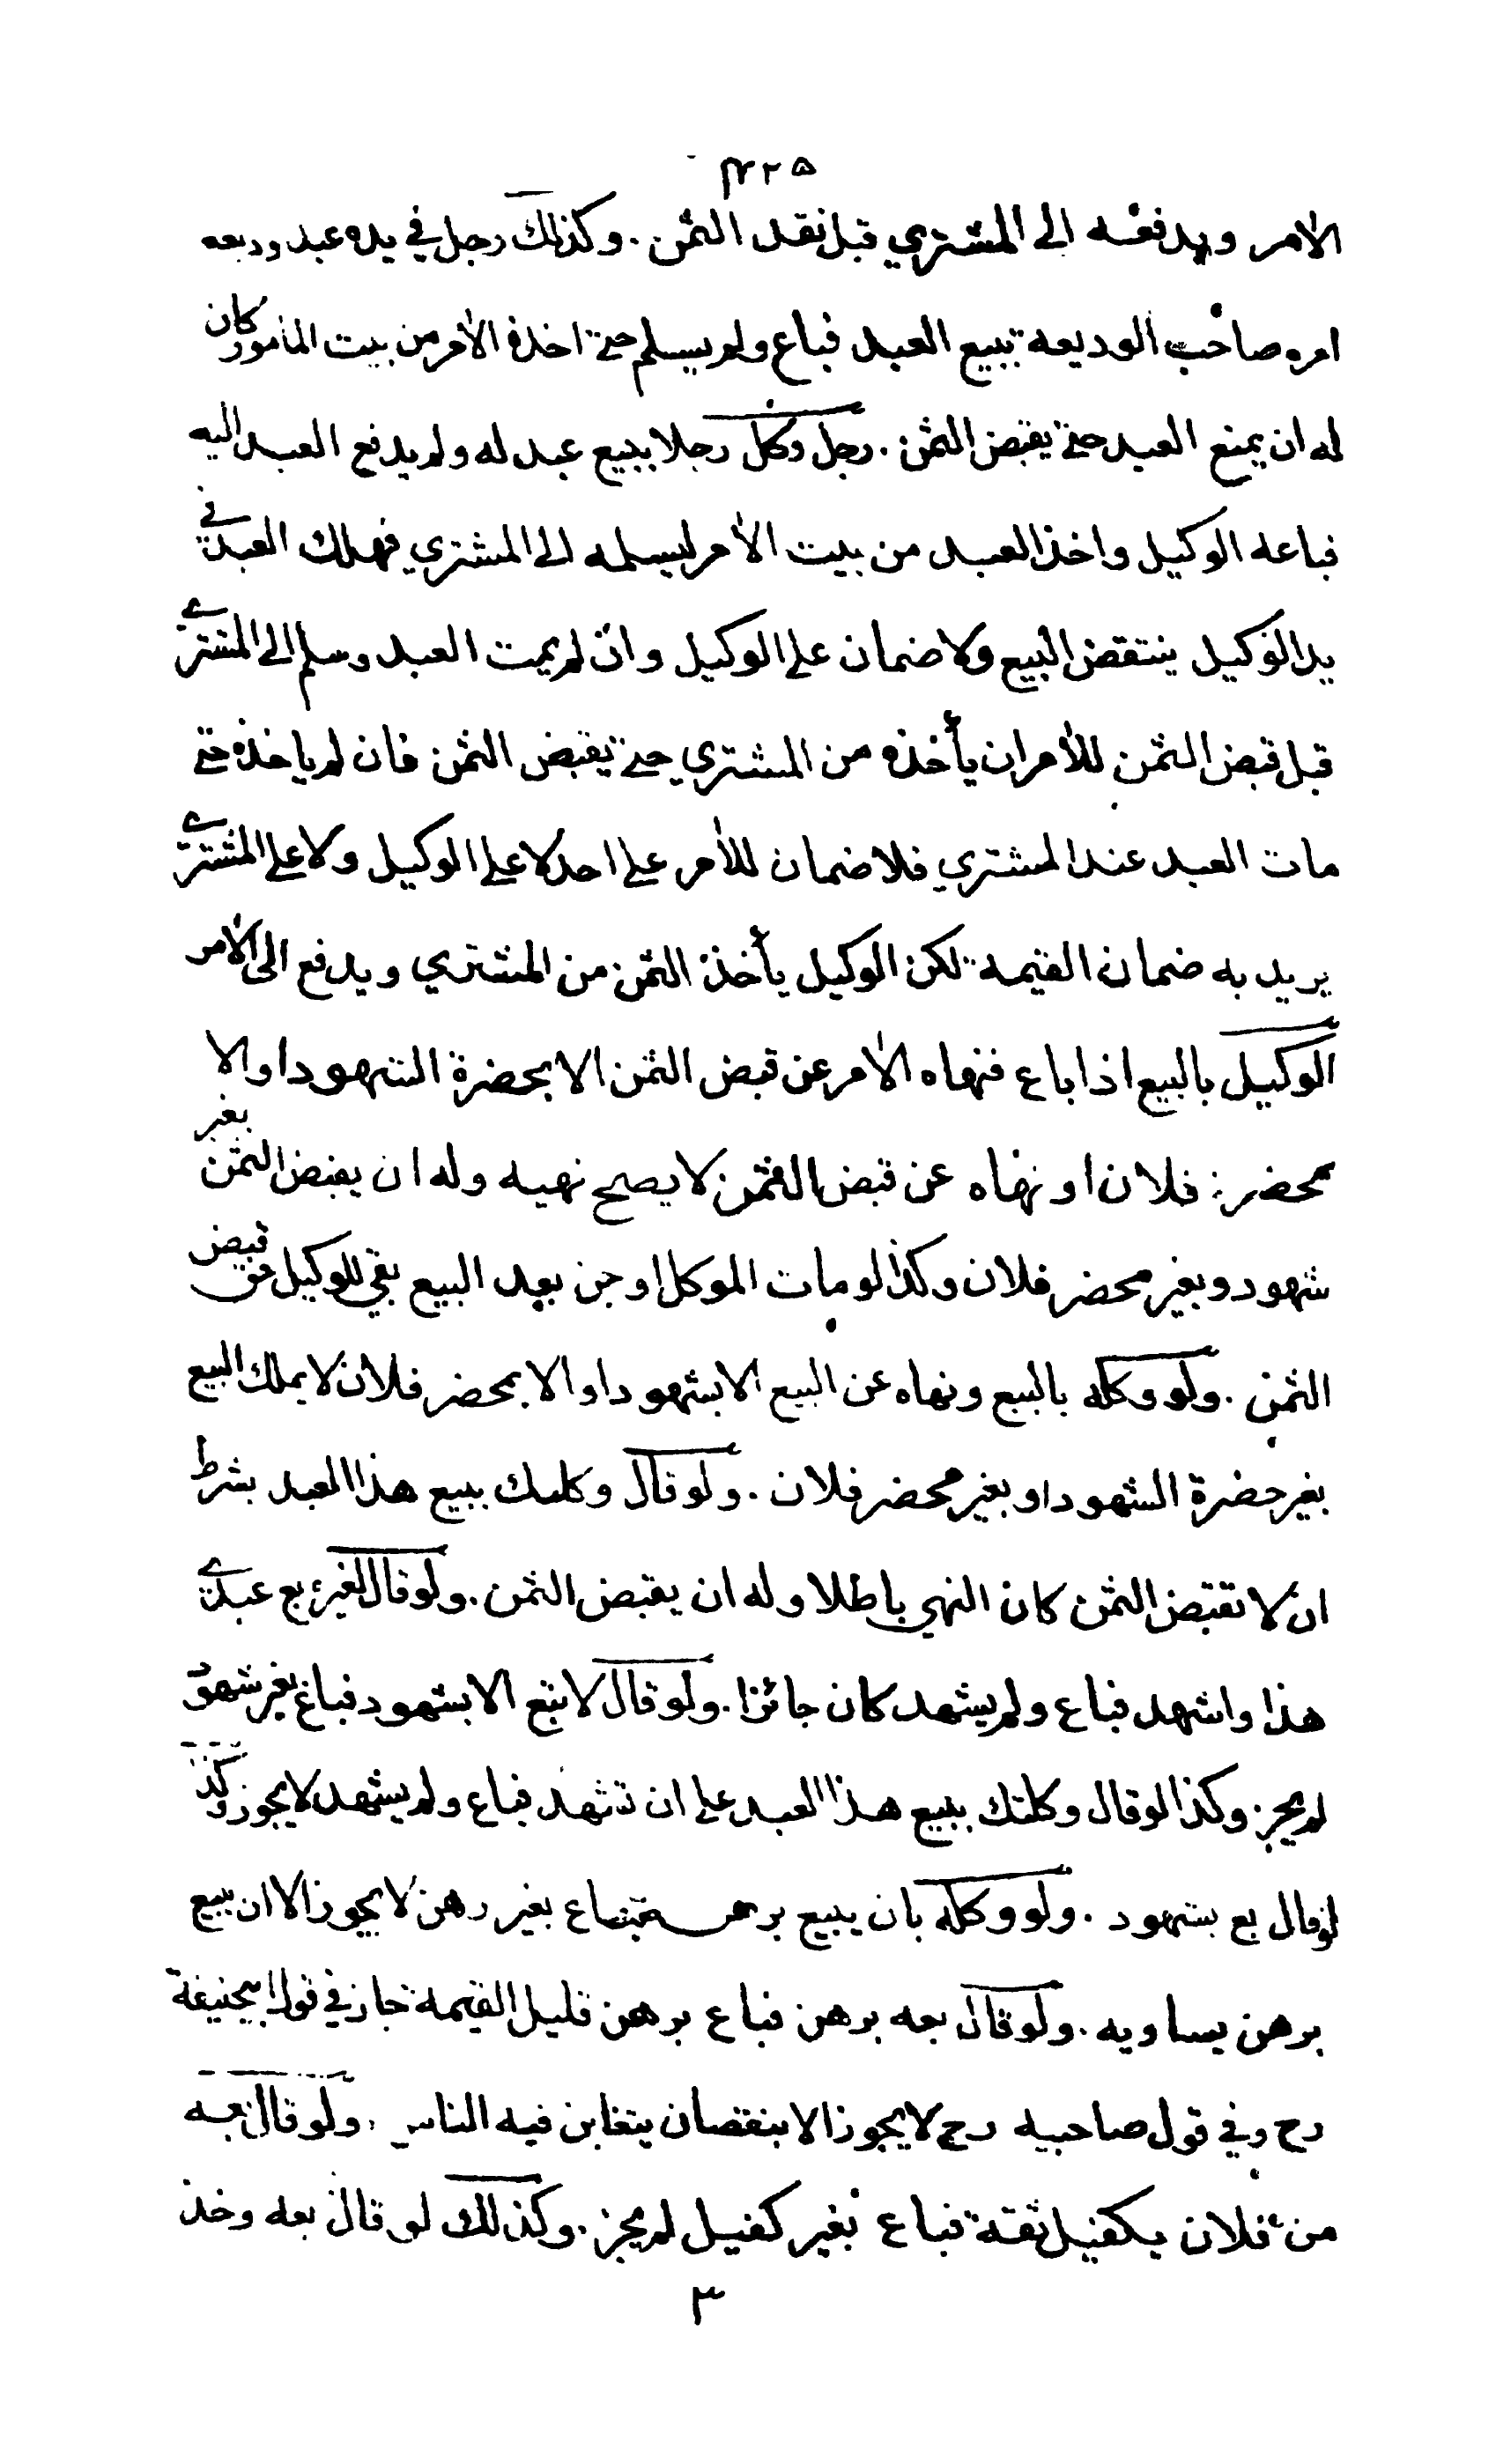 ٤٢٥
الامر ويدفعه الى المشتري قبل نقد الثمن . وكذلك رجل في يده عبد وديعه
امره صاحب الوديعة ببيع العبد فباع ولم يسلم حتى اخذه الآمر من بيت المأمور كان
له ان يمنع العبد حتى يقبض الثمن . رجل وكل رجلا ببيع عبد له ولم يدفع العبد اليه
فباعه الوكيل واخذ العبد من بيت الآمر ليسلمه الى المشتري فهلك العبد في
يد الوكيل ينتقض البيع ولا ضمان على الوكيل وان لم يمت العبد وسلم الى المشتري
قبل قبض الثمن للآمر ان يأخذه من المشتري حتى يقبض الثمن فان لم ياخذه حتى
مات العبد عند المشتري فلا ضمان للآمر على احد لا على الوكيل ولا على المشتري
يريد به ضمان القيمة لكن الوكيل يأخذ الثمن من المشتري ويدفع الى الآمر
الوكيل بالبيع اذا باع فنهاه الآمر عن قبض الثمن الا بحضرة الشهود او الا
بمحضر فلان او نهاه عن قبض الثمن لا يصح نهيه وله ان يقبض الثمن بغير
شهود وبغير محضر فلان وكذا لو مات الموكل او جن بعد البيع بقي للوكيل حق قبض
الثمن . ولو وكله بالبيع ونهاه عن البيع الا بشهود او الا بمحضر فلان لا يملك البيع
بغير حضرة الشهود او بغير محضر فلان . ولو قال وكلتك ببيع هذا العبد بشرط
ان لا تقبض الثمن كان النهي باطلا وله ان يقبض الثمن . ولو قال لغيره بع عبدي
هذا واشهد فباع ولم يشهد كان جائزا . ولو قال لا تبع الا بشهود فباع بغير شهود
لم يجز وكذا لو قال وكلتك ببيع هذا العبد على ان تشهد فباع ولم يشهد لا يجوز وكذا
لو قال بع بشهود . ولو وكله بان يبيع برهن فباع بغير رهن لا يجوز الا ان يبيع
برهن يساويه . ولو قال بعه برهن فباع برهن قليل القيمة جاز في قول ابيحنيفة
رح وفي قول صاحبيه رح لا يجوز الا بنقصان يتغابن فيه الناس . ولو قال بعه
من فلان بكفيل ثقة فباع بغير كفيل لم يجز . وكذلك لو قال بعه وخذ
٣